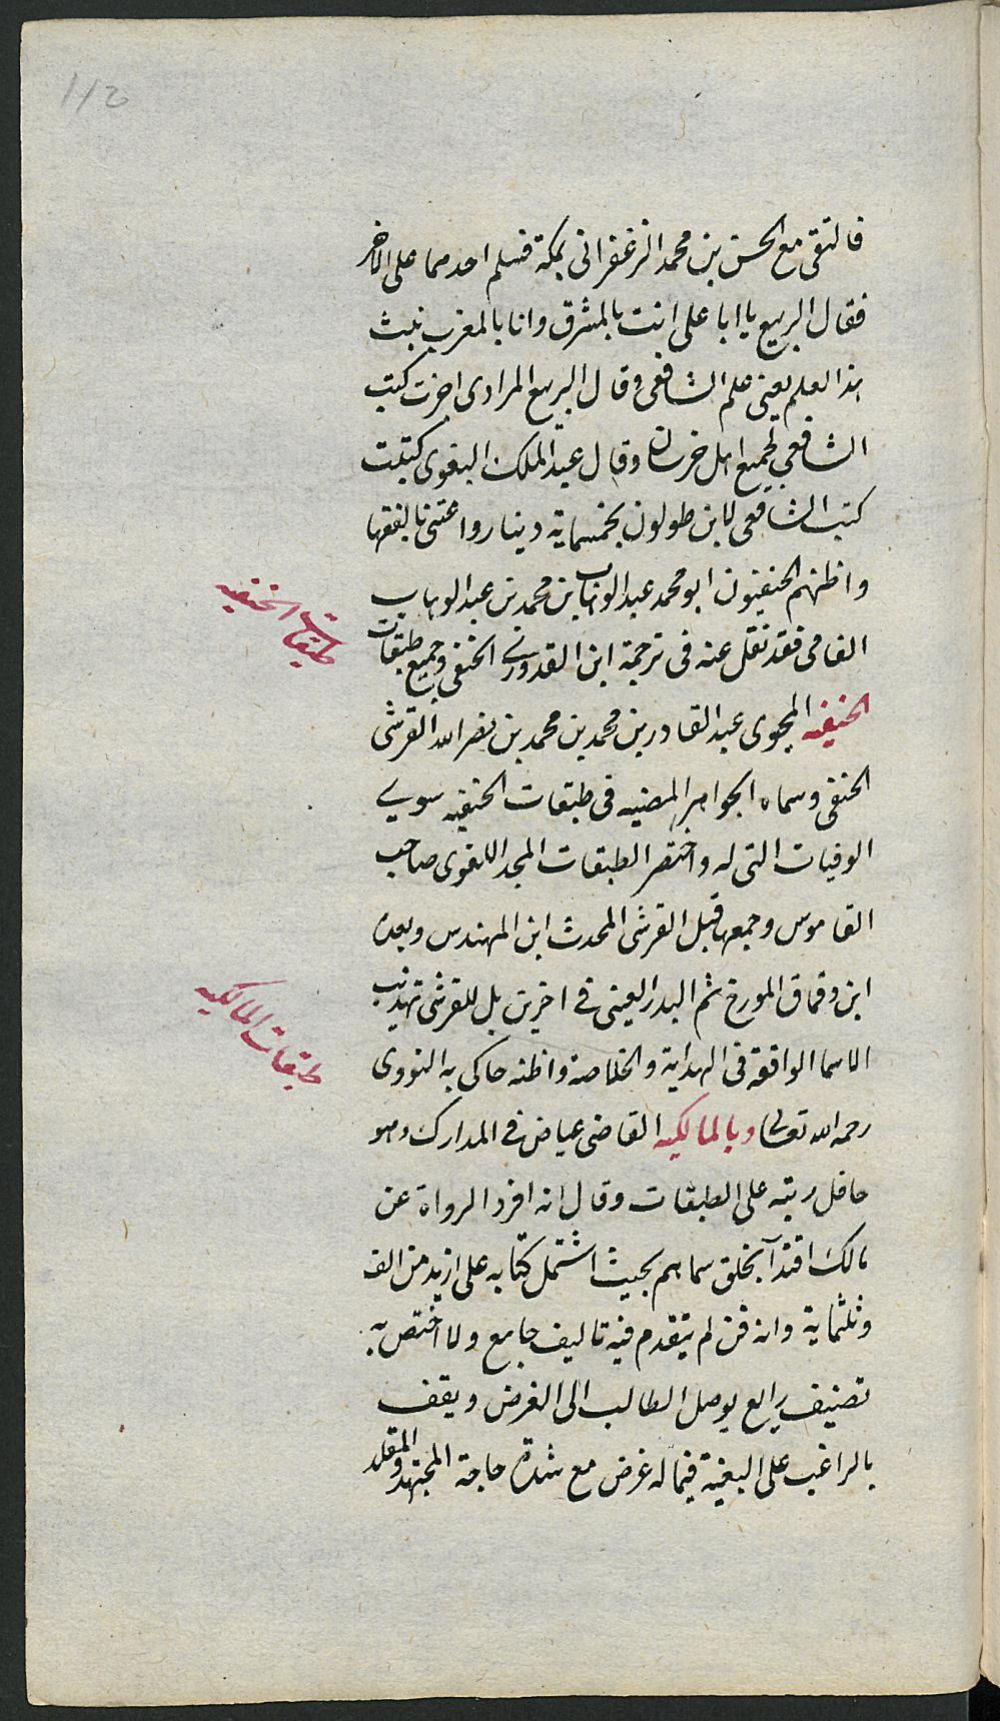 112
فالتقى مع الحسن بن محمد الزعفرانى بمكة فسلم احدهما على الاخر
فقال الربيع يا ابا على انت بالمشرق وانا بالمغرب نبث
هذا العلم يعنى علم الشافعى وقال الربيع المرادى اخذت كتب
الشافعى لجميع اهل خرسان وقال عبد الملك البغوى كتبت
كتب الشافعى لابن طولون بخمسماية دينار واعتنى بالفقها
واظنهم الحنفيون ابو محمد عبد الوهاب بن محمد بن عبد الوهاب
الفامى فقد نقل عنه فى ترجمة ابن القدورى الحنفى وجمع طبقات
طبقات الحنفيه
الحنيفه المحيوى عبد القادر بن محمد بن محمد بن نصر الله القرشى
الحنفى وسماه الجواهر المضيه فى طبقات الحنفيه سوى
الوفيات التى له واختصر الطبقات المجد اللغوى صاحب
القاموس وجمعها قبل القرشى المحدث ابن المهندس وبعده
ابن دقماق المورخ ثم البدر العينى فى اخرين بل للقرشى تهذيب
الاسما الواقعة فى الهداية والخلاصة واظنه حاكى به النووى
طبقات المالكيه
رحمه الله تعالى وبالمالكيه القاضى عياض فى المدارك وهو
حافل رتبه على الطبقات وقال انه افرد الرواة عن
مالك افتدآ بخلق سماهم بحيث اشتمل كتابه على ازيد من الف
وثلثماية وانه فن لم يتقدم فيه تاليف جامع ولا اختص به
تصنيف رايع يوصل الطالب الى الغرض ويقف
بالراغب على البغية فيما له غرض مع شدة حاجة المجتهد والمقلد